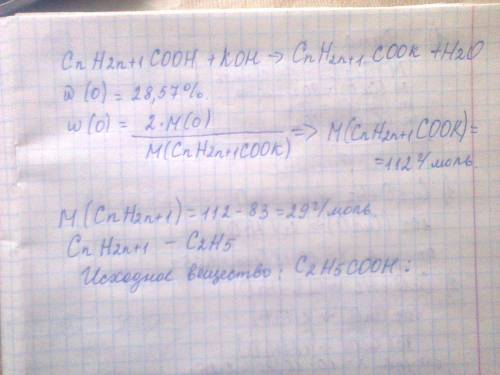 CnH2n+1COOH + KOH → CnH2n+1COOK + H2O
ω(O) = 28,57%.
ω(O) = 2·M(O) / M(CnH2n+1COOK) => M(CnH2n+1COOK) =
= 112 г/моль.
M(CnH2n+1) = 112 - 83 = 29 г/моль.
CnH2n+1 - C2H5
Исходное вещество: C2H5COOH.